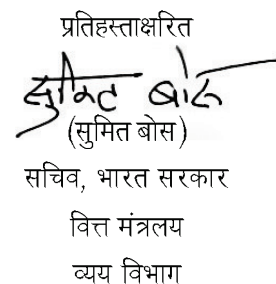 प्रतिहस्ताक्षरित
सुमित बोस
(सुमित बोस)
सचिव, भारत सरकार
वित्त मंत्रलय
व्यय विभाग